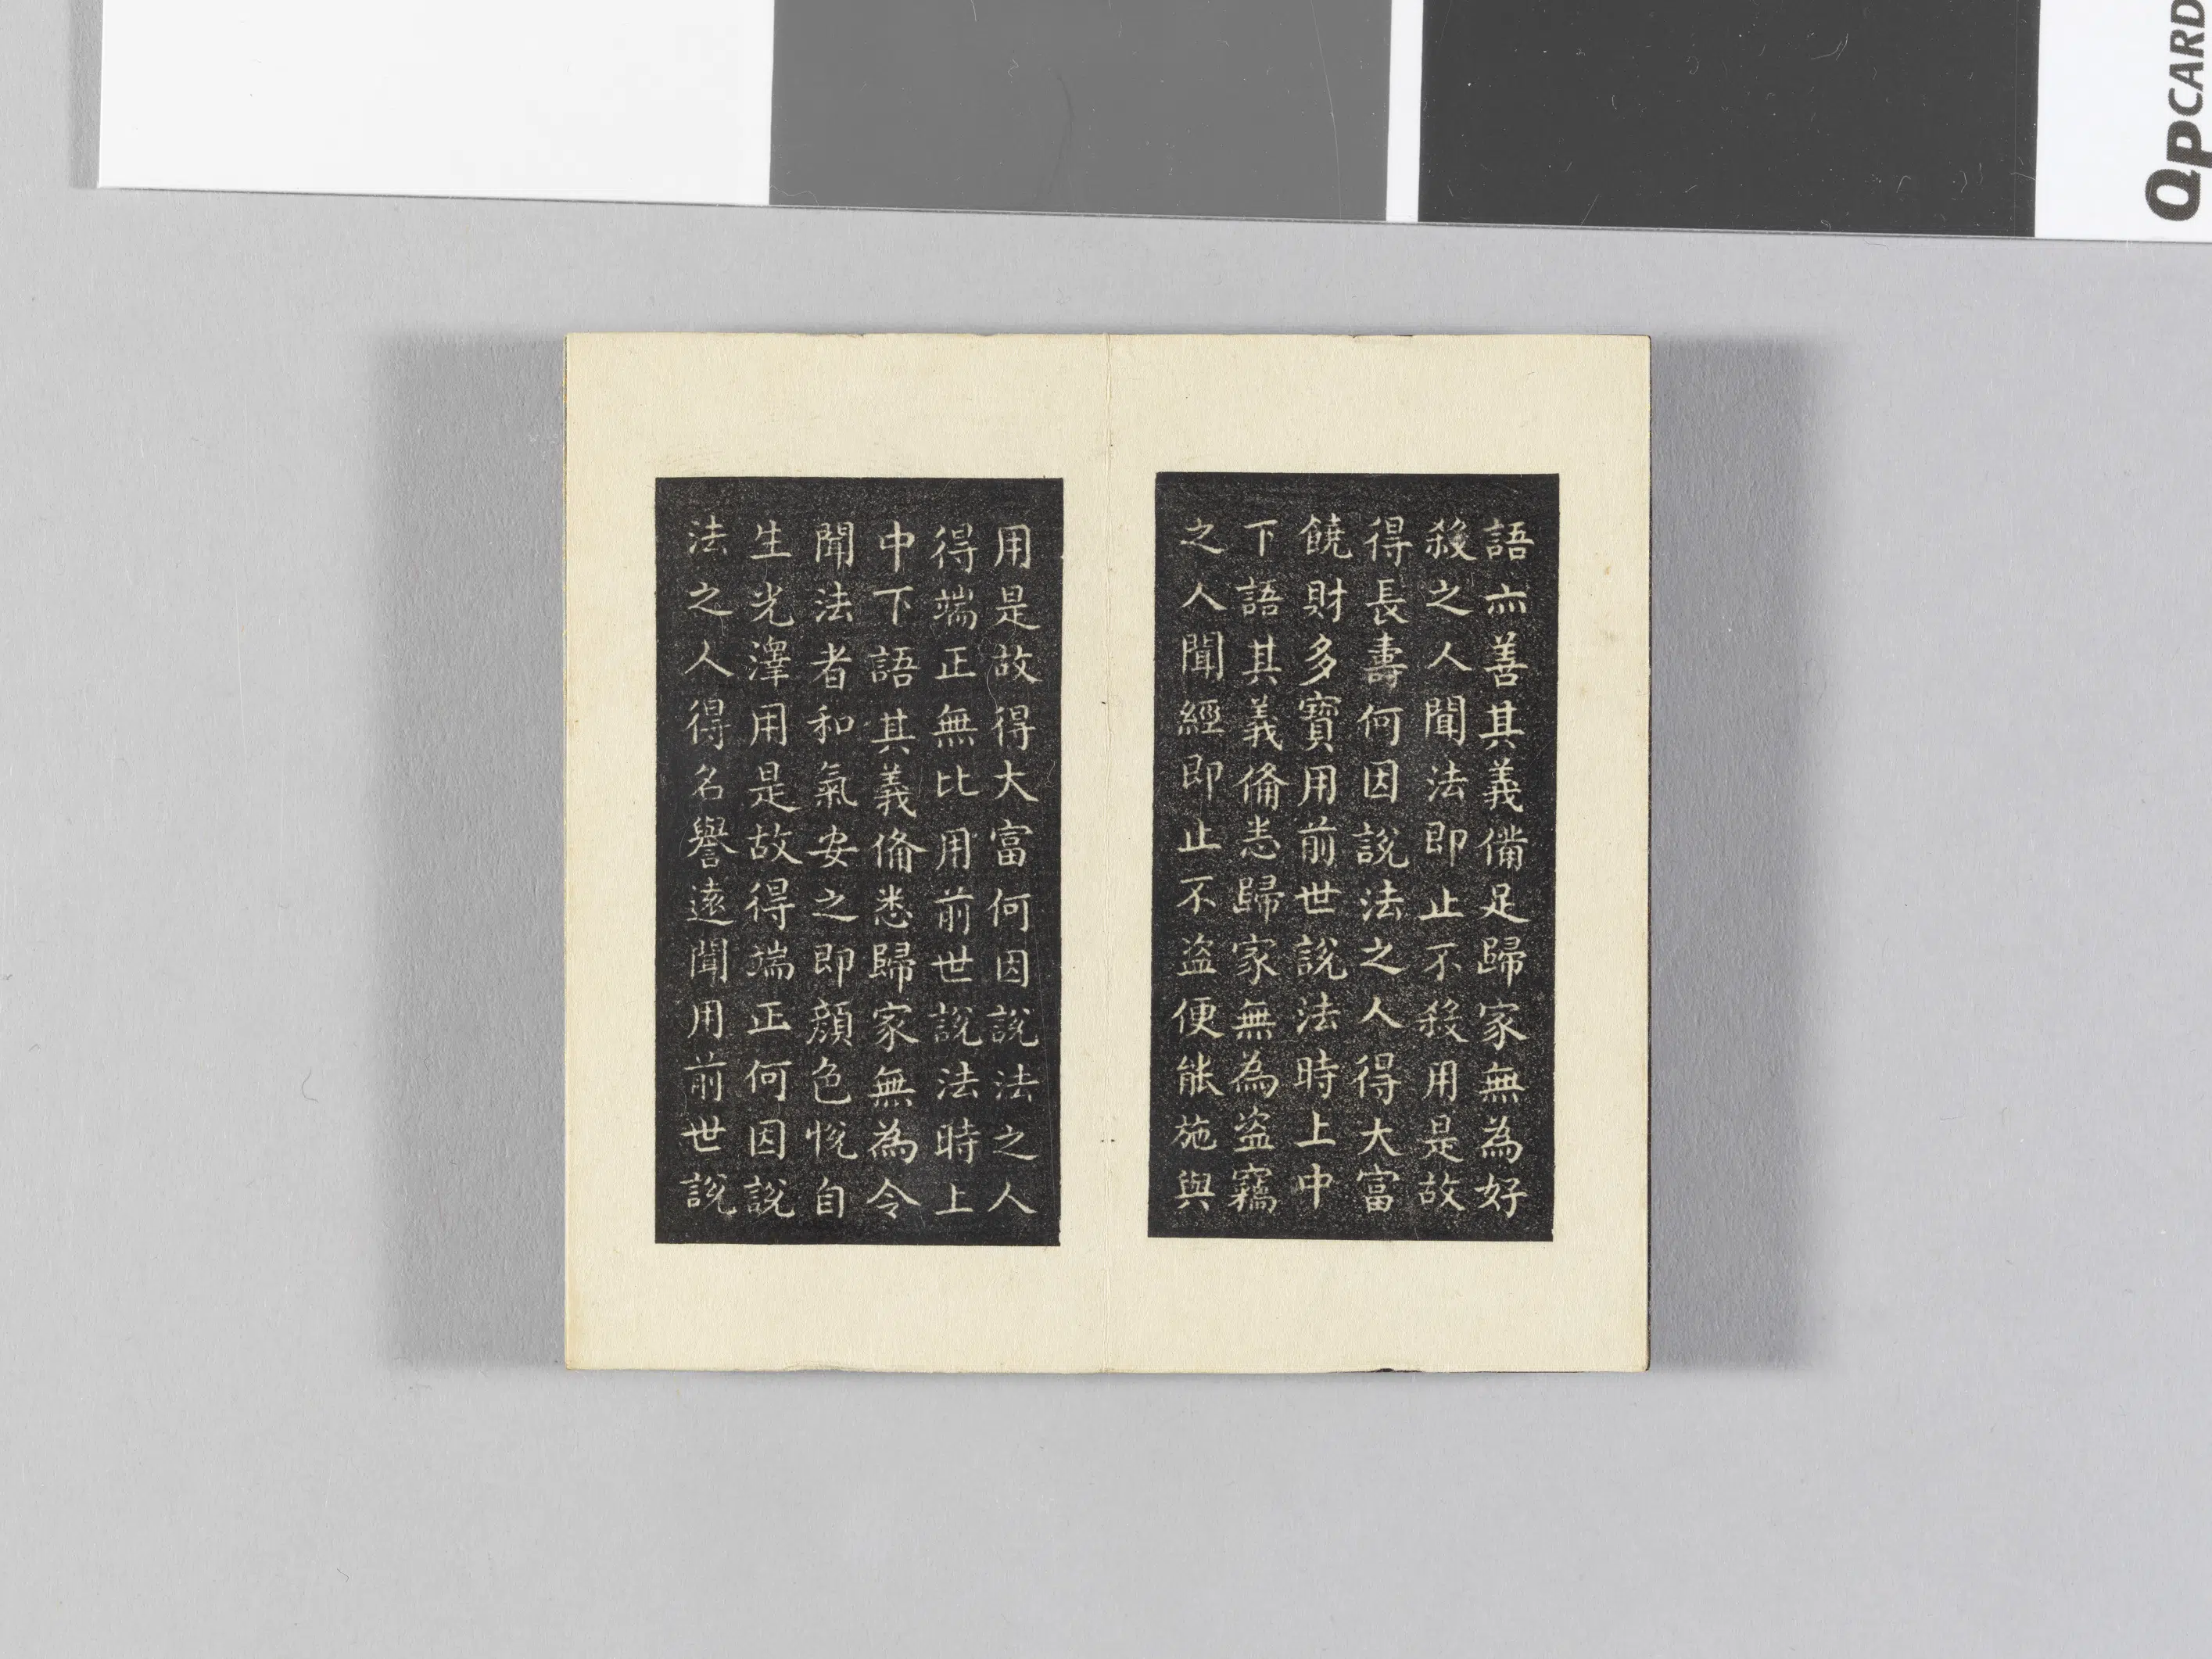 語亦善其義備足歸家無為好
殺之人聞法即止不殺用是故
得長壽何因說法之人得大富
饒財多寶用前世說法時上中
下語其義俻悉歸家無為盜竊
之人聞經即止不盜便能施與
用是故得大富何因說法之人
得端正無比用前世說法時上
中下語其義俻悉歸家無為令
聞法者和氣安之即顏色悅自
生光澤用是故得端正何因說
法之人得名譽遠聞用前世說
QPCARD